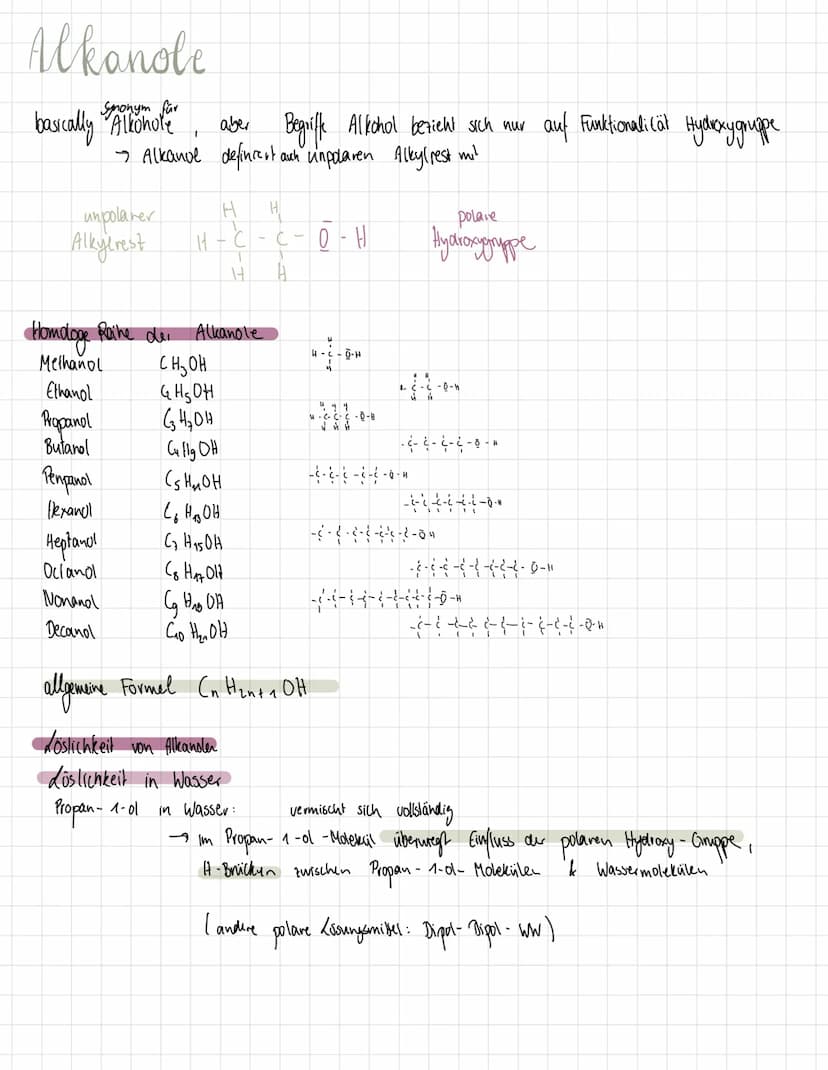 Alkanole
Synonym für
basically Alkohole, aber Begriff Alkohol bezieht sich nur auf Funktionalität Hydroxygruppe
→ Alkanol definiert auch unpolaren Alkylrest mit
unpolarer Alkylrest
H H
H - C - C - O - H
H H
polare Hydroxygruppe
Homologe Reihe der Alkanole
Methanol CH3OH H - C - O - H
Ethanol C2H5OH
Propanol C3H7OH
Butanol C4H9OH
Penpanol C5H11OH
Hexanol C6H13OH
Heptanol C7H15OH
Octanol C8H17OH
Nonanol C9H19OH
Decanol C10H21OH
allgemeine Formel CnH2n+1OH
Löslichkeit von Alkanolen
Löslichkeit in Wasser
Propan-1-ol in Wasser: vermischt sich vollständig
→ im Propan-1-ol-Molekül überwiegt Einfluss der polaren Hydroxy-Gruppe,
H-Brücken zwischen Propan-1-ol-Molekülen & Wassermolekülen
(andere polare Lösungsmittel: Dipol-Dipol-WW)